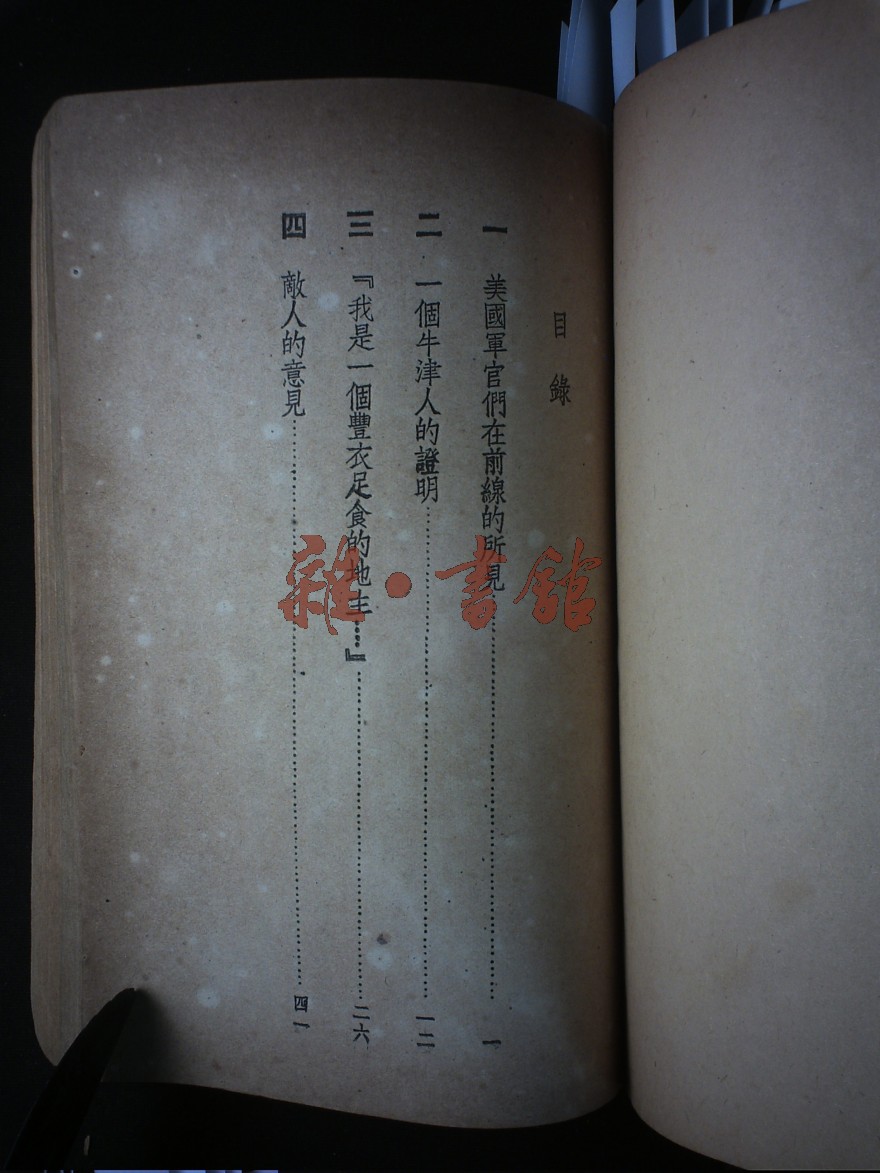 目錄
一 美國軍官們在前線的所見……一
二 一個牛津人的證明……一二
三 『我是一個豐衣足食的地主……』……二六
四 敵人的意見……四一
雜·書館